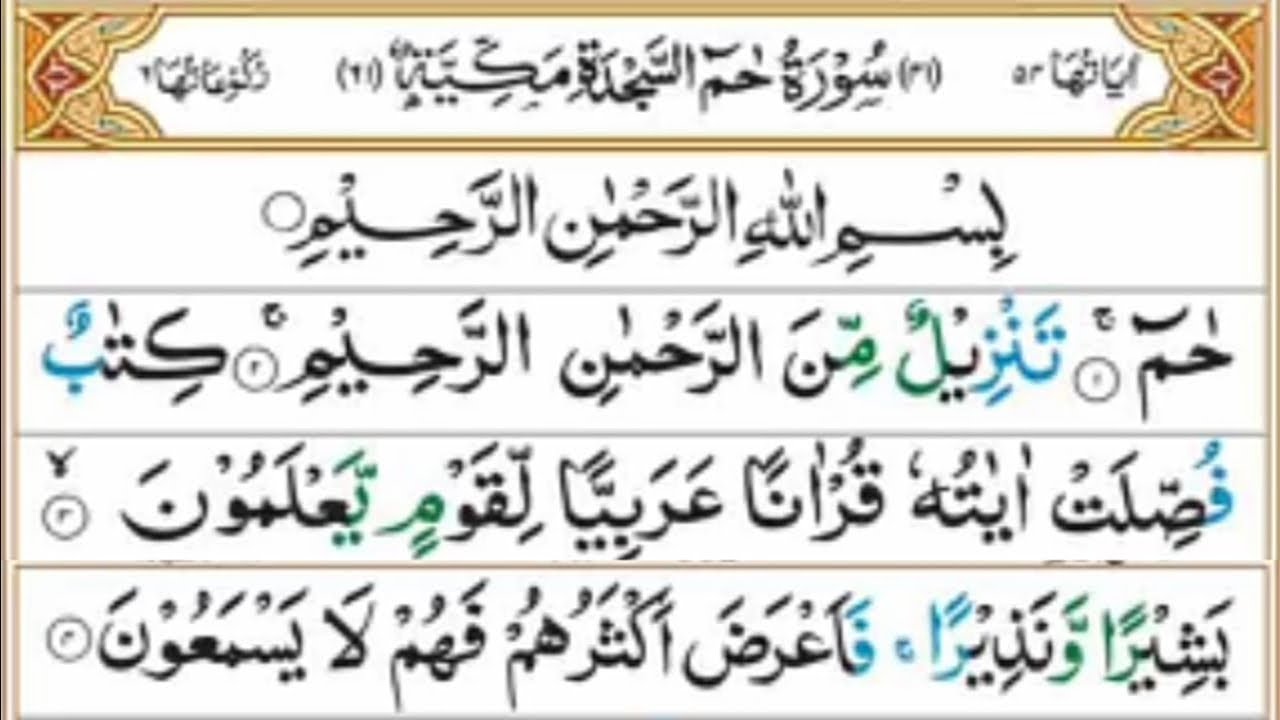 اٰیَاتُهَا ٥٤ (٤١) سُوْرَةُ حٰمٓ السَّجْدَةِ مَكِّيَّةٌ (٦١) رُكُوْعَاتُهَا ٦
بِسْمِ اللّٰهِ الرَّحْمٰنِ الرَّحِيْمِ
حٰمٓ ۚ ١ تَنْزِيْلٌ مِّنَ الرَّحْمٰنِ الرَّحِيْمِ ۚ ٢ كِتٰبٌ
فُصِّلَتْ اٰيٰتُهٗ قُرْاٰنًا عَرَبِيًّا لِّقَوْمٍ يَّعْلَمُوْنَ ۙ ٣
بَشِيْرًا وَّنَذِيْرًا ۚ فَاَعْرَضَ اَكْثَرُهُمْ فَهُمْ لَا يَسْمَعُوْنَ ٤